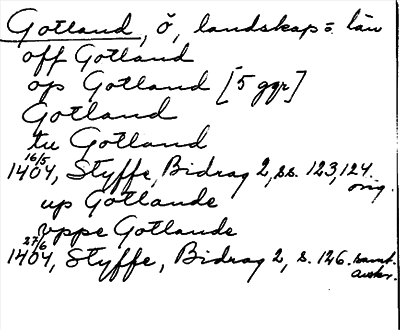 Gotland, ö, landskap = län
off Gotland
op Gotland [5 ggr]
Gotland
tu Gotland
16/5 1404, Styffe, Bidrag 2, ss. 123, 124. orig.
up Gotlande
vppe Gotlande
27/6 1404, Styffe, Bidrag 2, s. 126. samt. avskr.